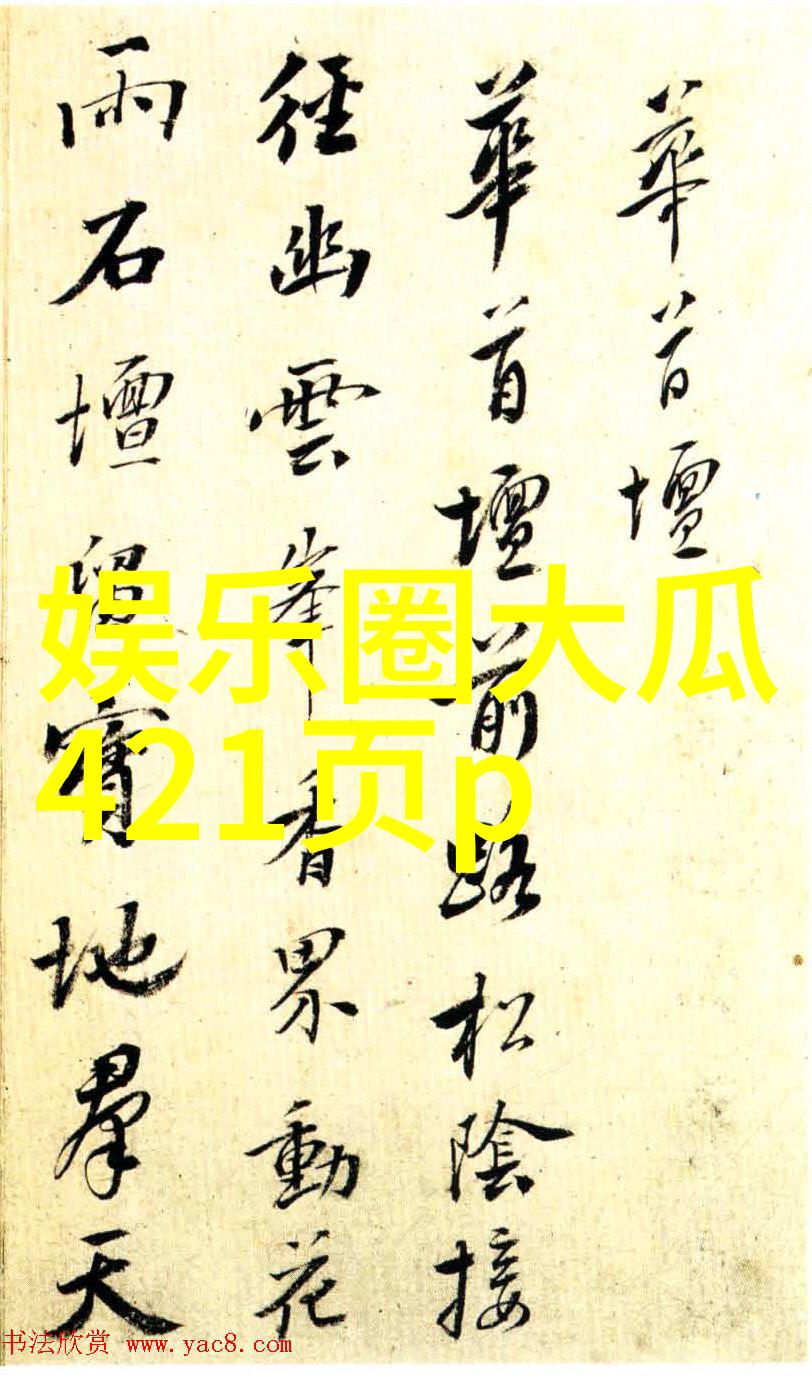 華首壇
華首壇前路松陰接
徑幽雲峯香界動花
雨石壇留地羣天
娱乐圈大瓜
421页p
书法欣赏 www.yac8.com